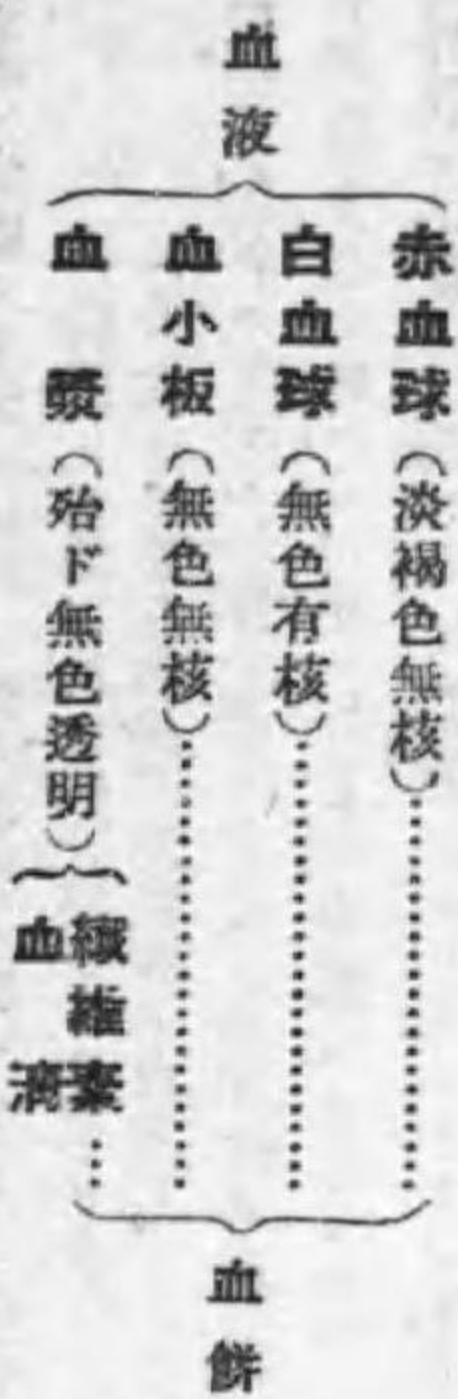 血液
赤血球(淡褐色無核)
白血球(無色有核)
血小板(無色無核)
血漿(殆ド無色透明)
纖維素
血清
血餅